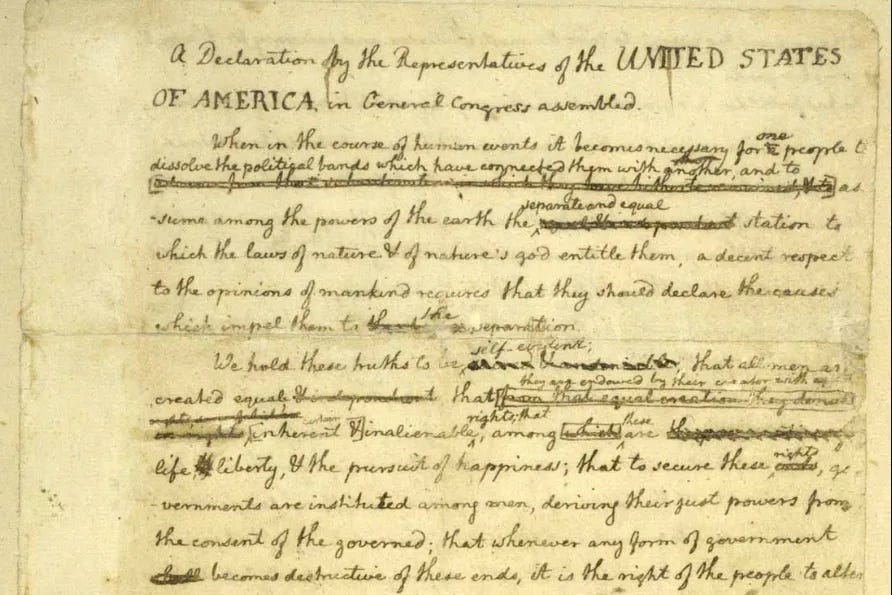 A Declaration by the Representatives of the UNITED STATES
OF AMERICA, in General Congress assembled.
one
When in the course of human events it becomes necessary for a people to
dissolve the political bands which have connected them with another, and to
as
separate and equal
-sume among the powers of the earth the station to
which the laws of nature & of nature's god entitle them, a decent respect
to the opinions of mankind requires that they should declare the causes
the
which impel them to separation.
self-evident;
We hold these truths to be that all men
they are endowed by their creator with
created equal & independent that from that equal creation they
certain rights; that these
[inherent &] inalienable, among which are
rights
life liberty, & the pursuit of happiness; that to secure these ends,
-vernments are instituted among men, deriving their just powers from
the consent of the governed; that whenever any form of government
becomes destructive of these ends, it is the right of the people to alter